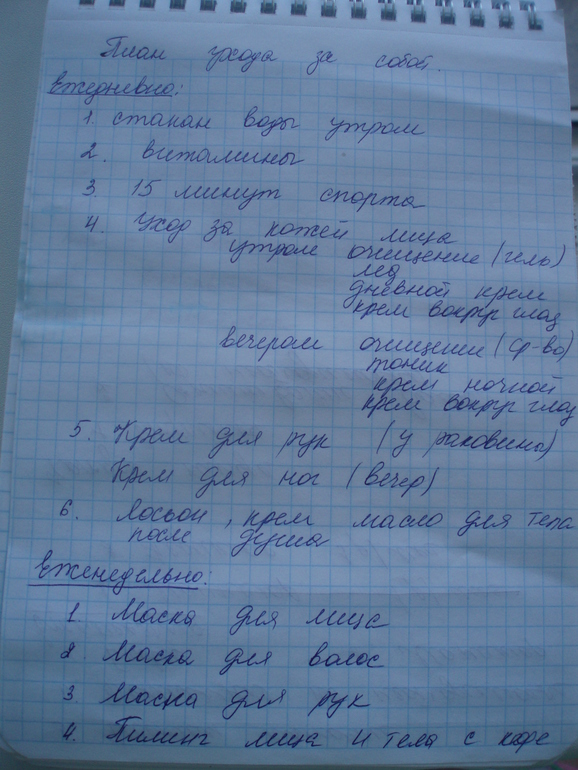 План ухода за собой.
Ежедневно:
1. стакан воды утром
2. витамины
3. 15 минут спорта
4. Уход за кожей лица
утром очищение (гель)
лед
дневной крем
крем вокруг глаз
вечером очищение (ср-во)
тоник
крем ночной
крем вокруг глаз
5. Крем для рук (у раковины)
Крем для ног (вечер)
6. Лосьон, крем масло для тела
после душа
Еженедельно:
1. Маска для лица
2 Маска для волос
3. Маска для рук
4. Пилинг лица и тела с кофе